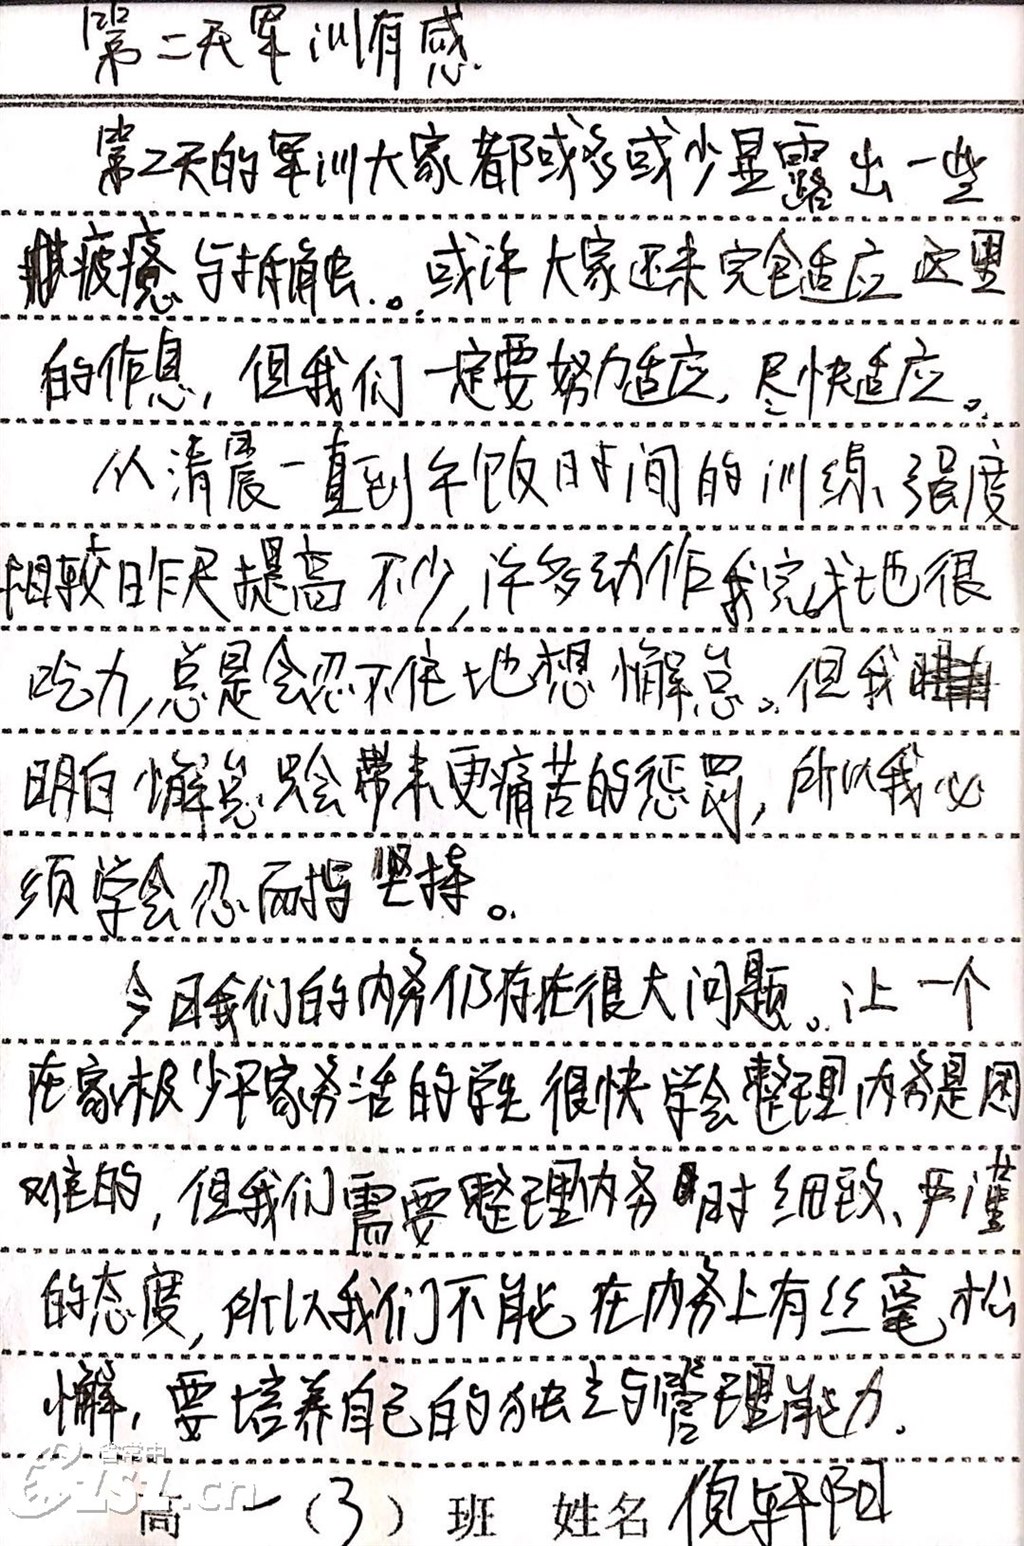 第二天军训有感
第2天的军训大家都或多或少显露出一些
疲惫与抵触。或许大家还未完全适应这里
的作息，但我们一定要努力适应，尽快适应。
从清晨一直到午饭时间的训练强度
相较昨天提高不少，许多动作我完成地很
吃力，总是会忍不住地想懈怠。但我
明白懈怠只会带来更痛苦的惩罚，所以我必
须学会忍耐与坚持。
今日我们的内务仍存在很大问题。让一个
在家极少干家务活的学生很快学会整理内务是困
难的，但我们需要整理内务时细致、严谨
的态度，所以我们不能在内务上有丝毫松
懈，要培养自己的独立与管理能力。
省常中
CZSZ.cn
高一（3）班 姓名 倪轩阳